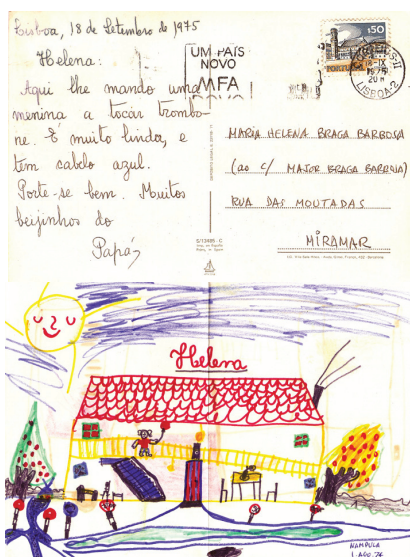 Lisboa, 18 de Setembro de 1975
Helena:
Aqui lhe mando uma
menina a tocar trombo-
ne. É muito linda, e
tem cabelo azul.
Porte-se bem. Muitos
beijinhos do
Papá
UM PAÍS
NOVO
MFA
POVO
1$50
PORTUGAL
1975
20 H
LISBOA-2
S/12495-C
MARIA HELENA BRAGA BARBOSA
(ao c/ MAJOR BRAGA BARBOSA)
RUA DAS MOUTADAS
MIRAMAR
Helena
NAMPULA
1. AGO. 74